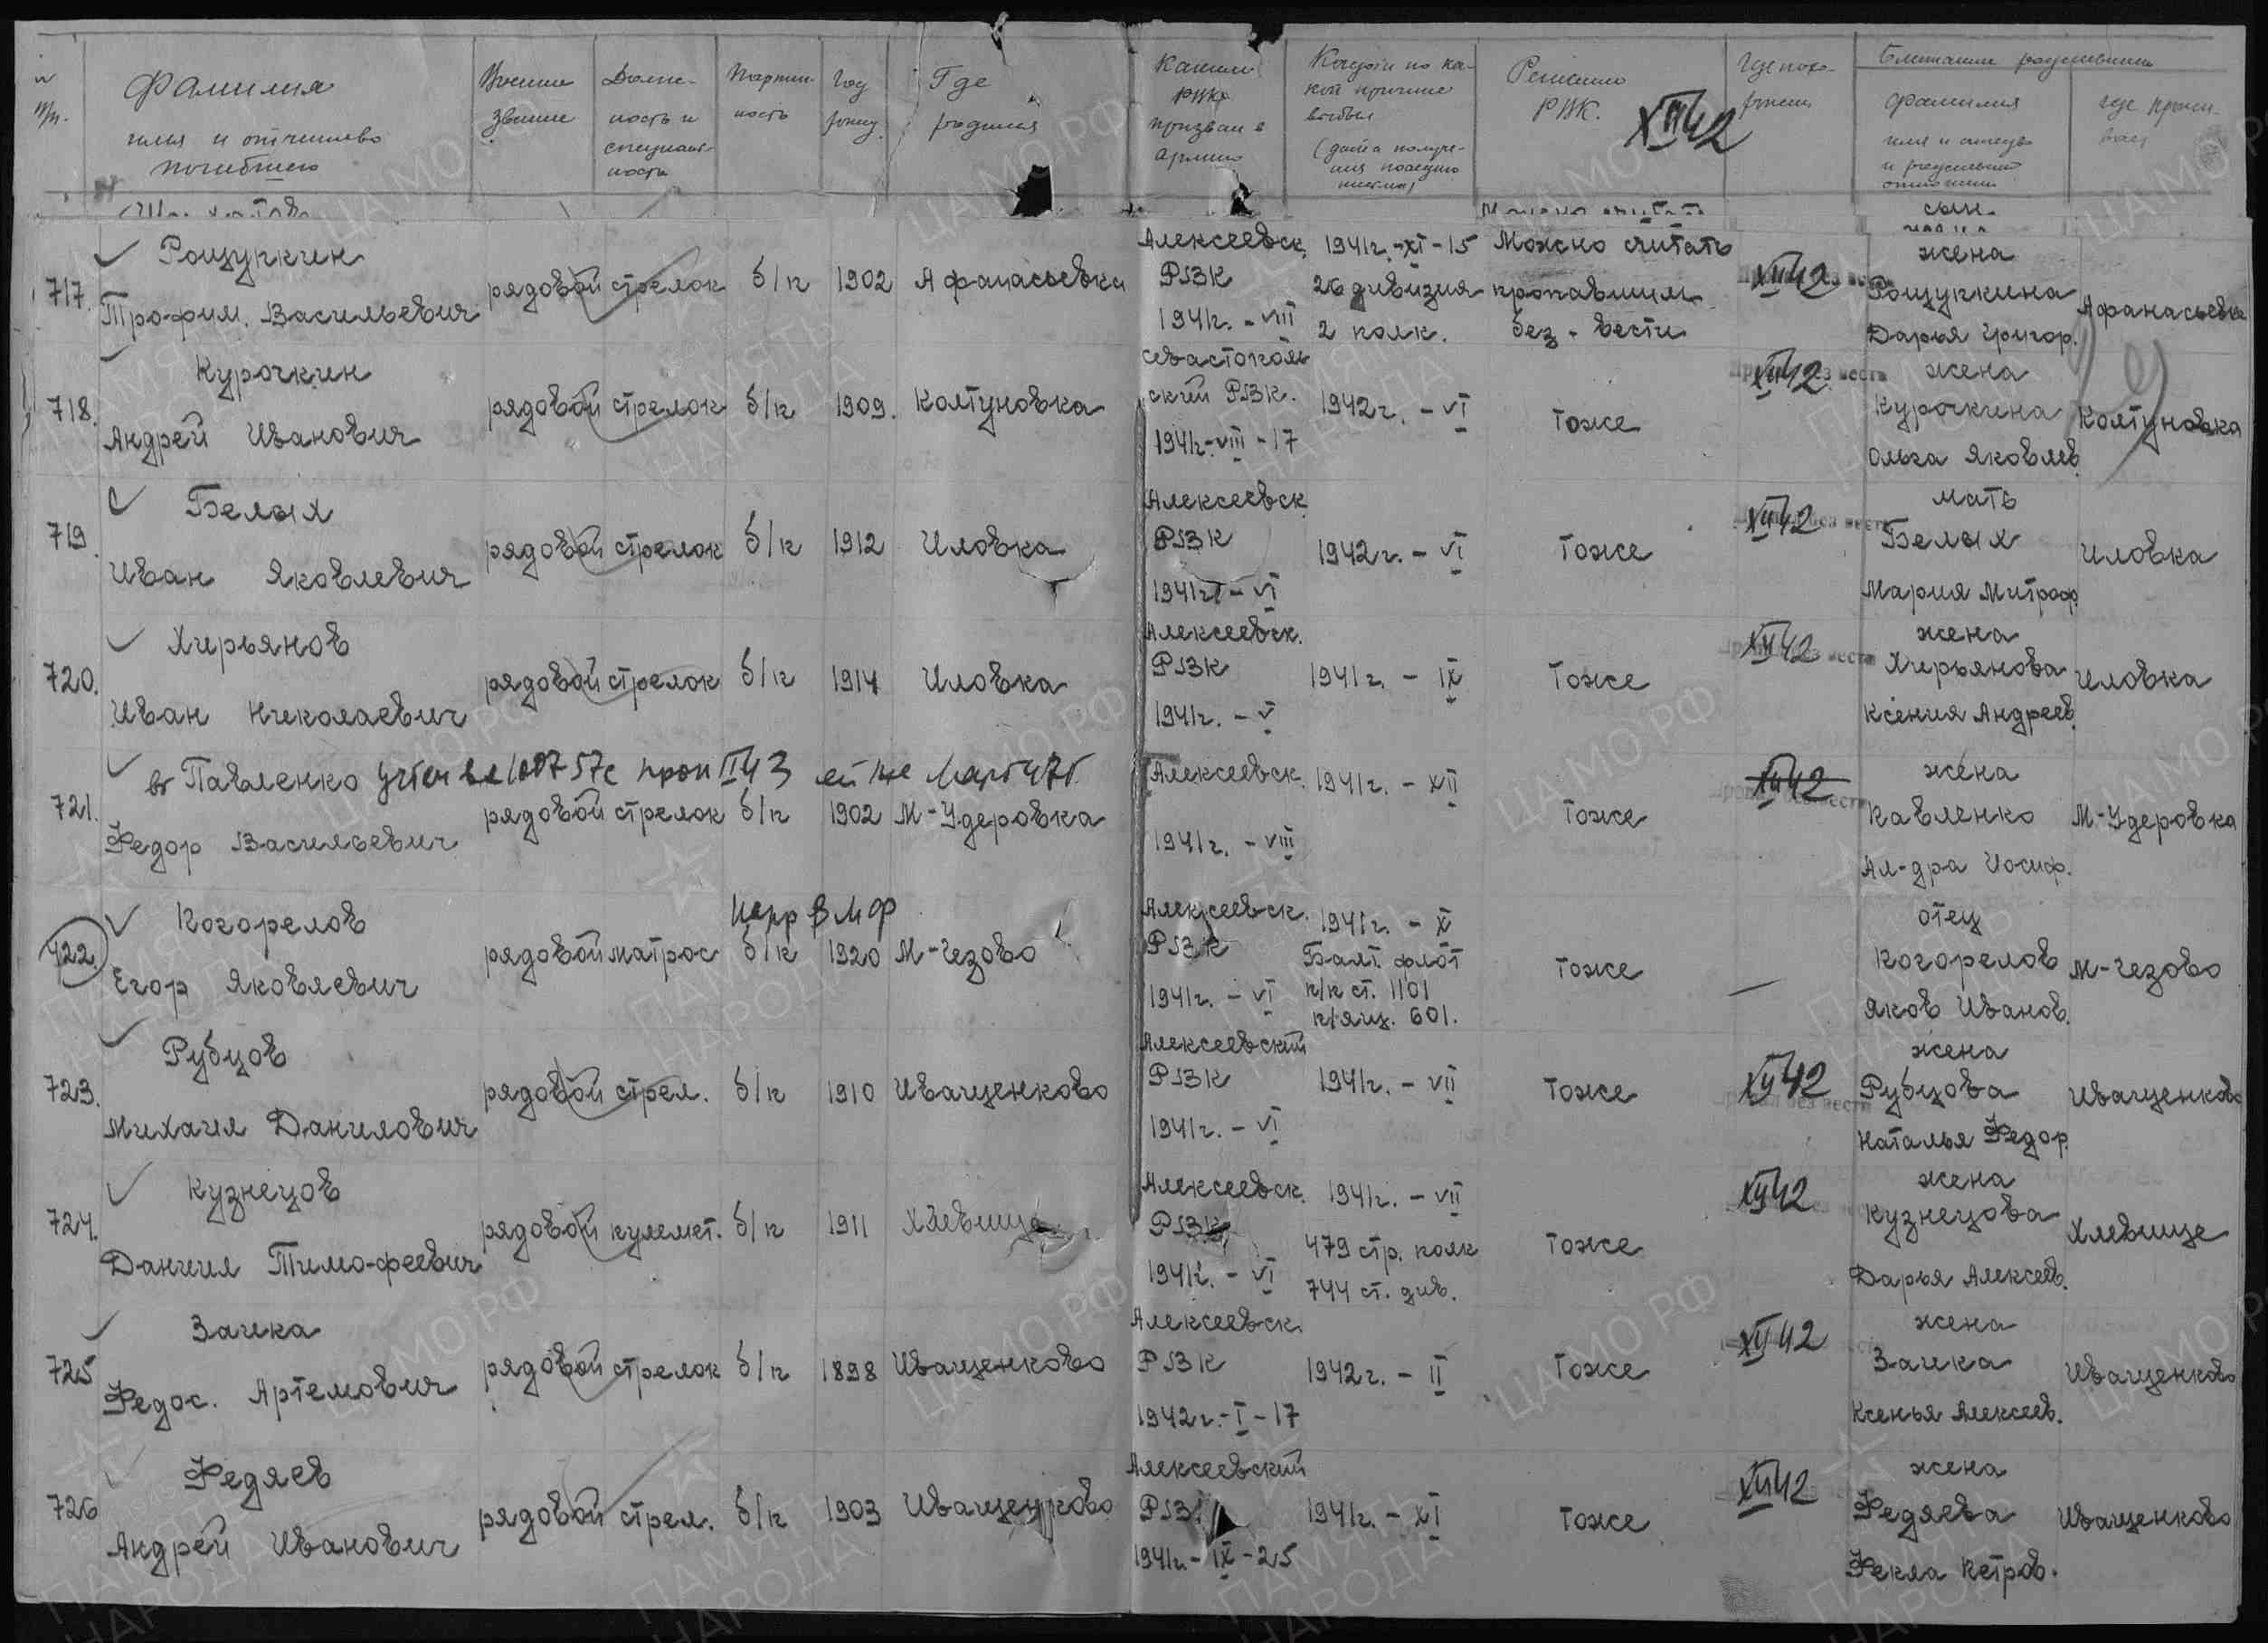 № Фамилия Военное Долж- Партий- Год Где Каким Когда и по ка- Решение Где похо- Ближайшие родственники
п/п. имя и отчество звание ность и ность рожд. родился РВК кой причине РВК. XII 42 ронен фамилия где прожи-
погибшего специаль- призван в выбыл имя и отчество вает
ность армию (дата получе- и родственные
ния последнего отношения
письма)
717. Рощупкин Трофим. Васильевич рядовой стрелок б/п 1902 Афанасьевка Алексеевск. РВК 1941г. - VIII 1941г. - XI - 15 26 дивизия 2 полк. Можно считать пропавшим без - вести XII 42 жена Рощупкина Дарья Григор. Афанасьевка
718. Курочкин Андрей Иванович рядовой стрелок б/п 1909. Колтуновка Севастополь ский РВК. 1941г. - VIII - 17 1942г. - VI Тоже XII 42 жена Курочкина Ольга Яковлев. Колтуновка
719. Белых Иван Яковлевич рядовой стрелок б/п 1912 Иловка Алексеевск РВК 1941г. - VI 1942г. - VI Тоже XII 42 мать Белых Мария Митроф. Иловка
720. Хирьянов Иван Николаевич рядовой стрелок б/п 1914 Иловка Алексеевск. РВК 1941г. - V 1941г. - IX Тоже XII 42 жена Хирьянова Ксения Андреев. Иловка
721. Павленко Федор Васильевич рядовой стрелок б/п 1902 М-Удеровка Алексеевск. 1941г. - VIII 1941г. - XII Тоже XII 42 жена Павленко Ал-дра Иосиф. М-Удеровка
722. Погорелов Егор Яковлевич рядовой матрос б/п 1920 М-Чезово Алексеевск. РВК 1941г. - VI 1941г. - X Балт. флот п/п ст. 1101 п/ящ. 601. Тоже — отец Погорелов Яков Иванов. М-Чезово
723. Рубцов Михаил Данилович рядовой стрел. б/п 1910 Иващенково Алексеевский РВК 1941г. - VI 1941г. - VII Тоже XII 42 жена Рубцова Наталья Федор. Иващенково
724. Кузнецов Даниил Тимофеевич рядовой пулемет. б/п 1911 Хлевище Алексеевск. РВК 1941г. - VI 1941г. - VII 479 стр. полк 744 ст. див. Тоже XII 42 жена Кузнецова Дарья Алексеев. Хлевище
725 Заика Федос. Артемович рядовой стрелок б/п 1898 Иващенково Алексеевск. РВК 1942г. - I - 17 1942г. - II Тоже XII 42 жена Заика Ксенья Алексеев. Иващенково
726 Федяев Андрей Иванович рядовой стрел. б/п 1903 Иващенково Алексеевский РВК 1941г. - IX - 25 1941г. - XI Тоже XII 42 жена Федяева Фекла Петров. Иващенково